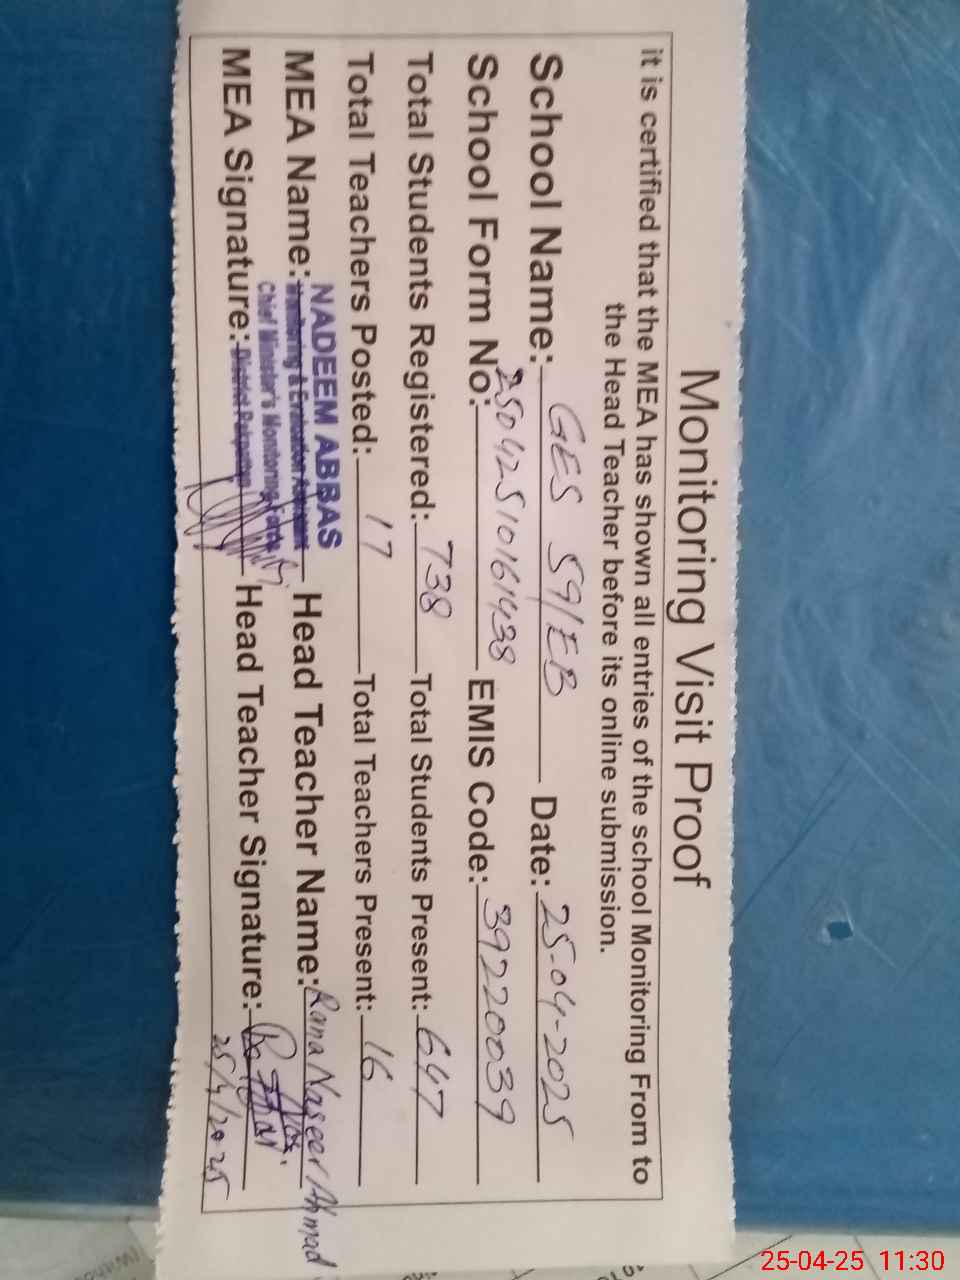 Monitoring Visit Proof
it is certified that the MEA has shown all entries of the school Monitoring From to
the Head Teacher before its online submission.
School Name: GES 59/EB Date: 25-04-2025
School Form No: 25042510161438 EMIS Code: 39220039
Total Students Registered: 738 Total Students Present: 647
Total Teachers Posted: 17 Total Teachers Present: 16
MEA Name: NADEEM ABBAS Head Teacher Name: Rana Naseer Ahmad
Monitoring & Evaluation Assistant
Chief Minister's Monitoring Force
MEA Signature: District Pakpattan Head Teacher Signature:
25/4/2025
25-04-25 11:30